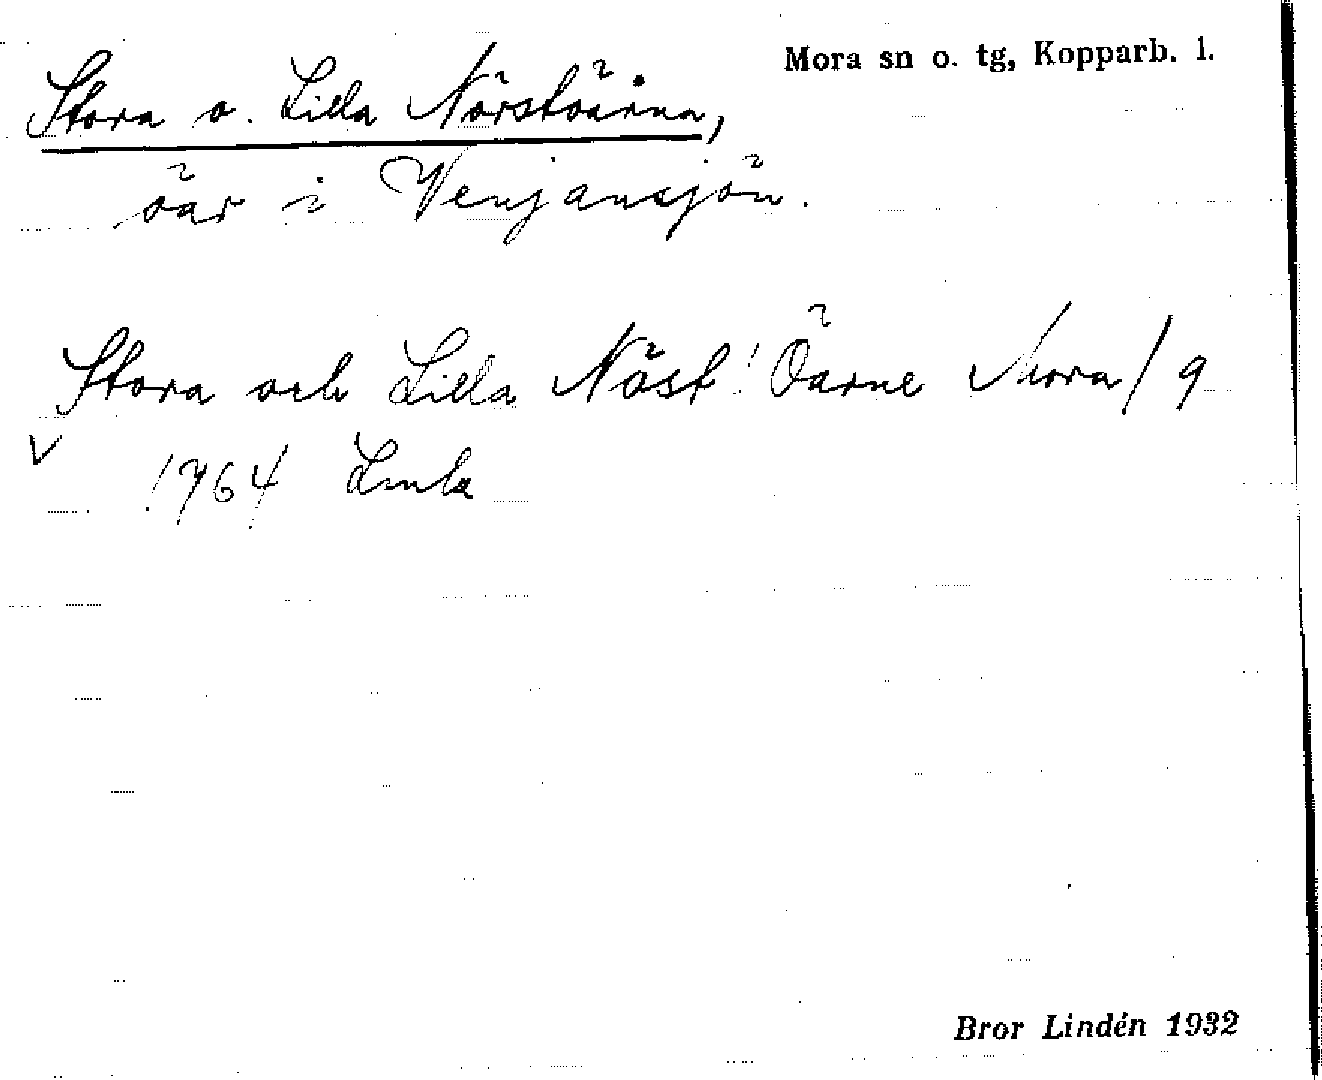 Mora sn o. tg, Kopparb. l.
Stora o. Lilla Nörstöarna,
öar i Venjansjön.
Stora och Lilla Nöst! Öarne Mora / 9
V 1764 Lmla
Bror Lindén 1932